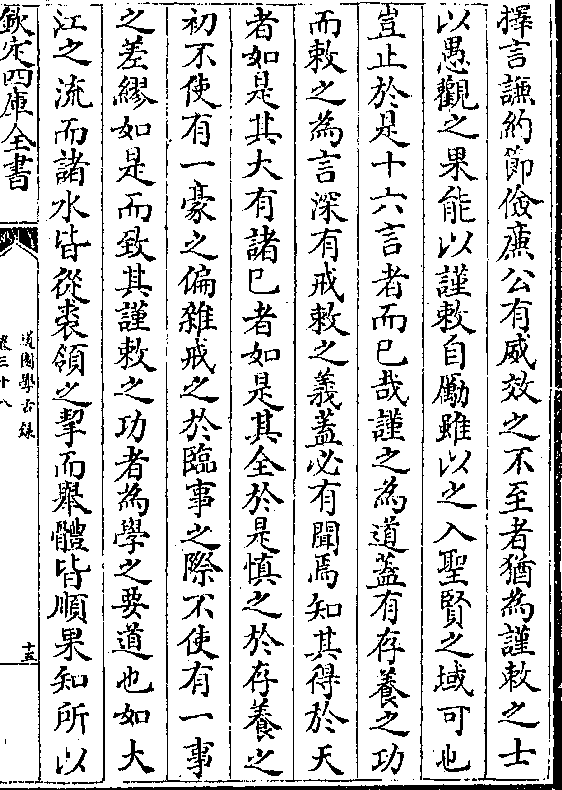 擇言謙約節儉㢘公有威效之不至者猶為謹敕之士
以愚觀之果能以謹敕自勵雖以之入聖賢之域可也
豈止於是十六言者而已哉謹之為道蓋有存養之功
而敕之為言深有戒敕之義蓋必有聞焉知其得於天
者如是其大有諸已者如是其全於是慎之於存養之
初不使有一豪之偏雜戒之於臨事之際不使有一事
之差繆如是而致其謹敕之功者為學之要道也如大
江之流而諸水皆從裘領之挈而舉體皆順果知所以
欽定四庫全書
道園學古録
卷三十八
十三